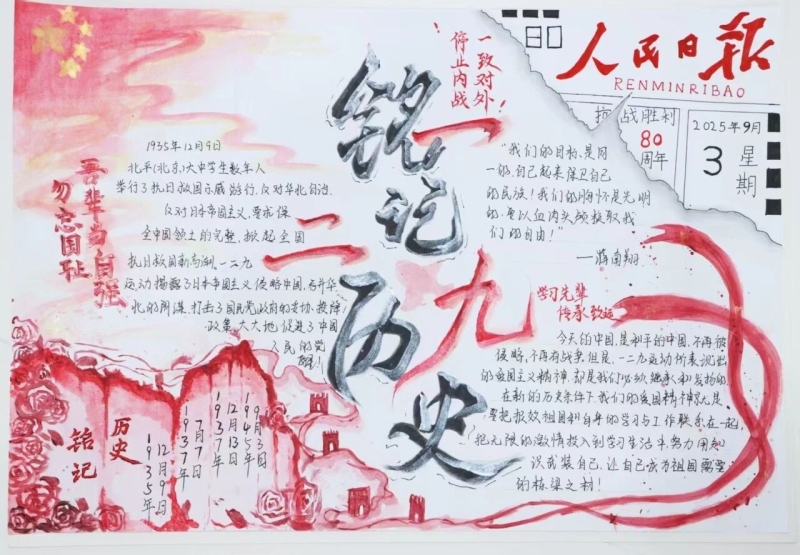 人民日报
RENMINRIBAO
抗战胜利
80
周年
2025年9月
3
星期
一致对外!
停止内战
铭记
历史
一
二
九
吾辈当自强
勿忘国耻
1935年12月9日
北平(北京)大中学生数千人
举行了抗日救国示威游行,反对华北自治,
反对日本帝国主义,要求保
全中国领土的完整,掀起全国
抗日救国新高潮,一二九
运动揭露了日本帝国主义侵略中国,吞并华
北的阴谋,打击了国民党政府的妥协投降
政策,大大地促进了中国
人民的觉
醒!
"我们的目标,是同
一的,自己起来保卫自己
的民族!我们的胸怀是光明
的,要以血肉头颅换取我
们的自由!"
——蒋南翔
学习先辈
传承致远
今天的中国,是和平的中国,不再被
侵略,不再有战争,但是,一二九运动所表现出
的爱国主义精神,却是我们必须继承和发扬的
在新的历史条件下我们的爱国精神就是
要把报效祖国和自身的学习与工作联系在一起,
把无限的激情投入到学习生活中,努力用知
识武装自己,让自己成为祖国需要
的栋梁之材!
铭记
历史
1935年
12月9日
1937年
7月7日
1937年
12月13日
1945年
9月3日